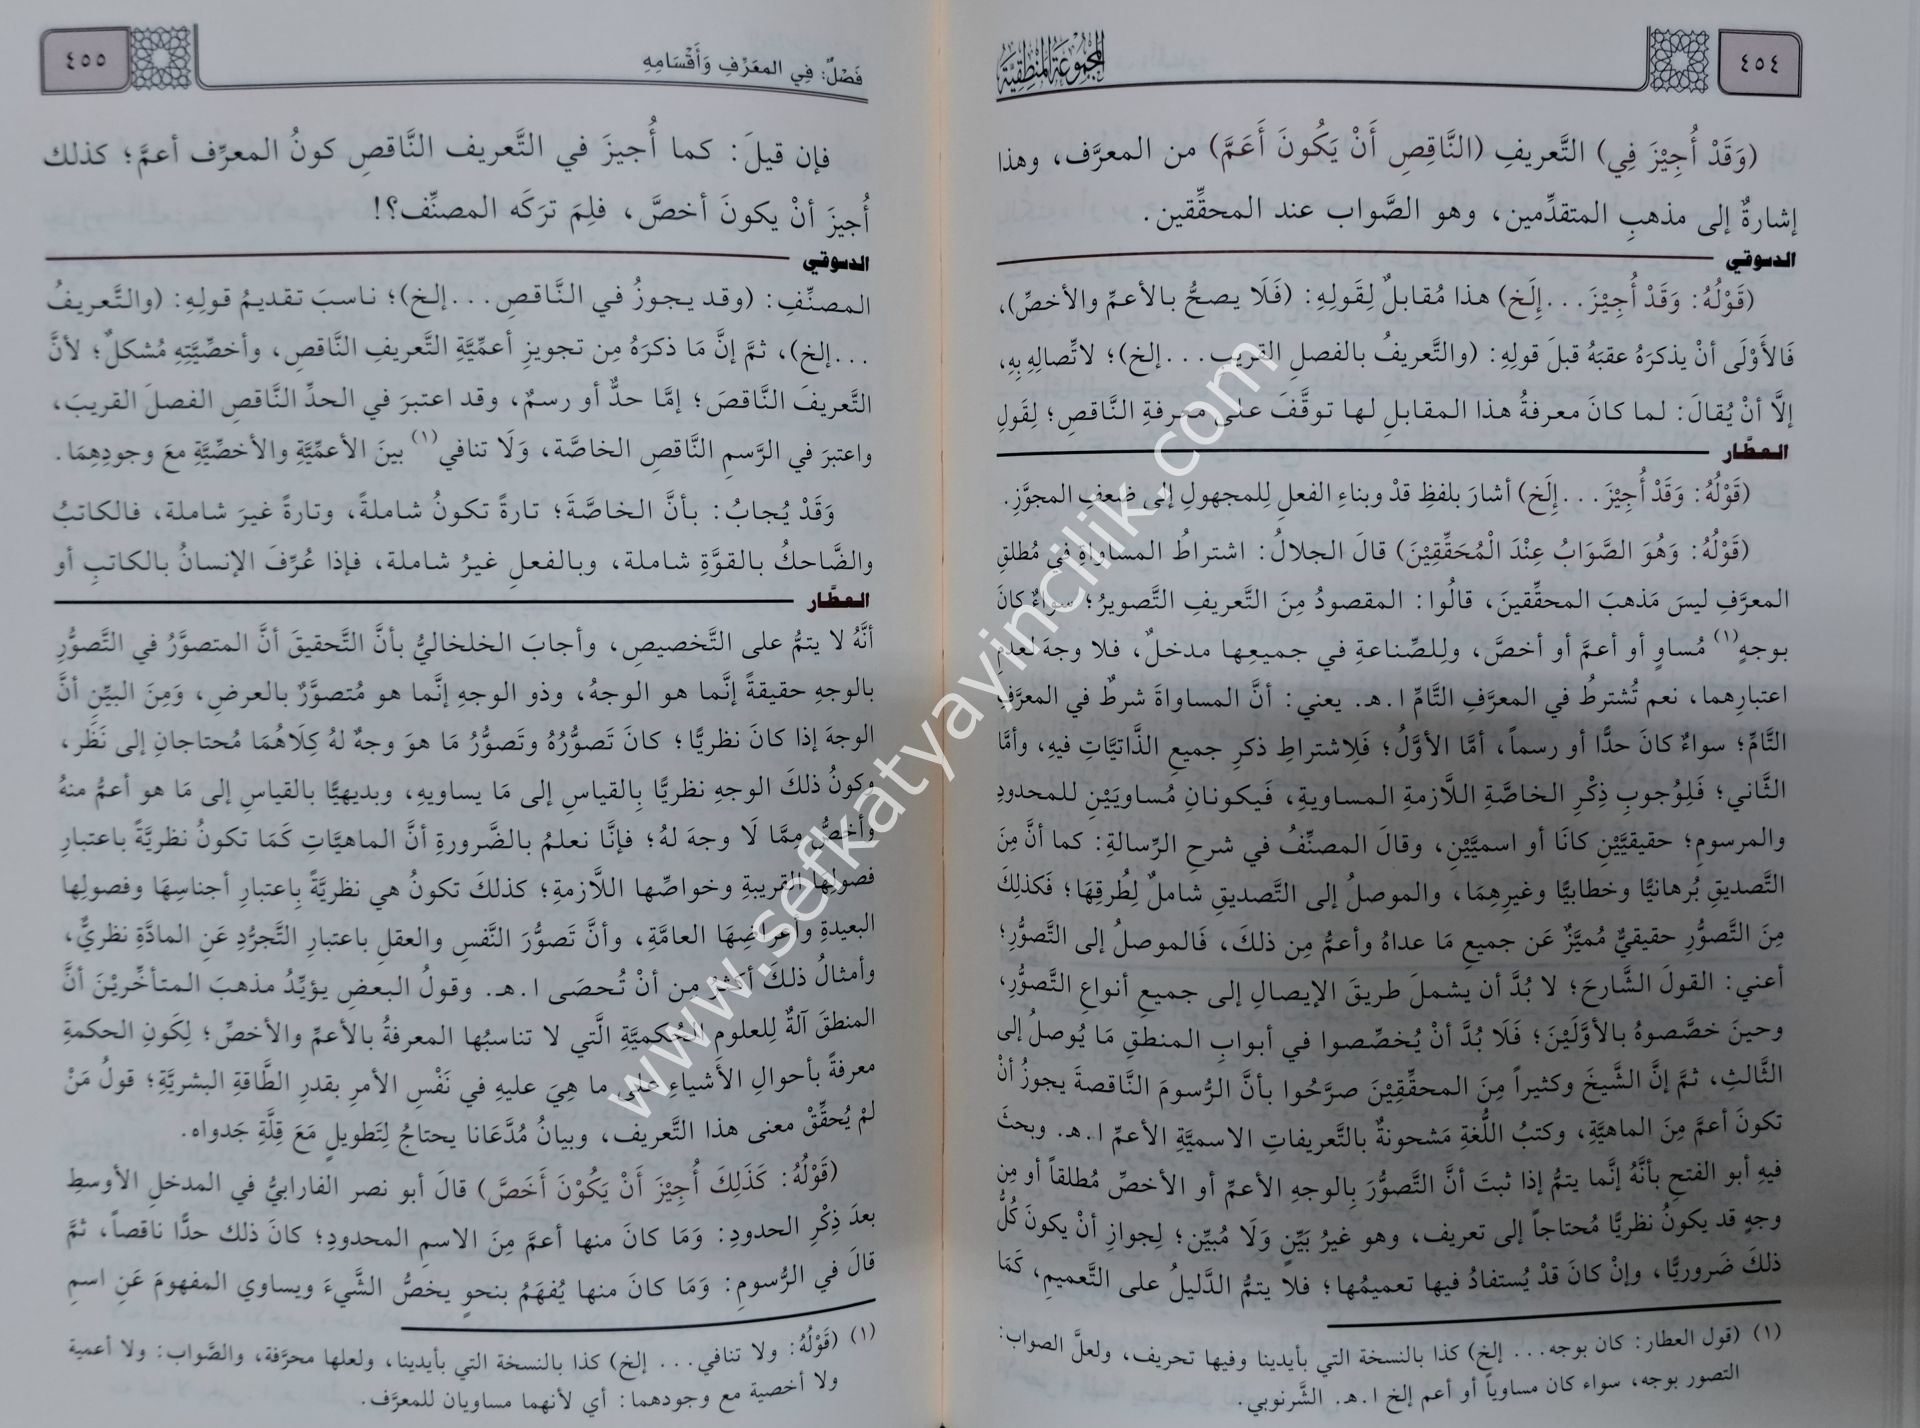 ٤٥٤
المجموعة المنطقية
(وَقَدْ أُجِيْزَ فِي) التَّعريفِ (النَّاقِصِ أَنْ يَكُونَ أَعَمَّ) من المعرَّف، وهذا
إشارةٌ إلى مذهبِ المتقدِّمين، وهو الصَّواب عند المحقِّقين.
الدسوقي
(قَوْلُهُ: وَقَدْ أُجِيْزَ...إِلَخ) هذا مُقابلٌ لِقَولِهِ: (فَلَا يصحُّ بالأعمِّ والأخصِّ)،
فَالأَوْلَى أنْ يذكرَهُ عقبَهُ قبلَ قولِهِ: (والتَّعريفُ بالفصلِ القريبِ...إلخ)؛ لاتِّصالِهِ بِهِ،
إلَّا أنْ يُقالَ: لما كانَ معرفةُ هذا المقابلِ لها توقَّفَ على معرفةِ النَّاقصِ؛ لِقَولِ
العطَّار
(قَوْلُهُ: وَقَدْ أُجِيْزَ...إِلَخ) أشارَ بلفظِ قدْ وبناءِ الفعلِ لِلمجهولِ إلى ضعفِ المجوَّزِ.
(قَوْلُهُ: وَهُوَ الصَّوَابُ عِنْدَ الْمُحَقِّقِيْنَ) قالَ الجلالُ: اشتراطُ المساواةِ في مُطلقِ
المعرَّفِ ليسَ مَذهبَ المحقِّقينَ، قالُوا: المقصودُ مِنَ التَّعريفِ التَّصويرُ؛ سواءٌ كانَ
بوجهٍ(١) مُساوٍ أو أعمَّ أو أخصَّ، ولِلصِّناعةِ في جميعِها مدخلٌ، فلا وجهَ لعدمِ
اعتبارِهما، نعم تُشترطُ في المعرَّفِ التَّامِّ ا.هـ. يعني: أنَّ المساواةَ شرطٌ في المعرَّفِ
التَّامِّ؛ سواءٌ كانَ حدًّا أو رسماً، أمَّا الأوَّلُ؛ فَلِاشتراطِ ذكرِ جميعِ الذَّاتيَّاتِ فيهِ، وأمَّا
الثَّاني؛ فَلِوُجوبِ ذِكْرِ الخاصَّةِ اللَّازمةِ المساويةِ، فَيكونانِ مُساويَيْنِ للمحدودِ
والمرسومِ؛ حقيقيَّيْنِ كانَا أو اسميَّيْنِ، وقالَ المصنِّفُ في شرحِ الرِّسالةِ: كما أنَّ مِنَ
التَّصديقِ بُرهانيًّا وخطابيًّا وغيرِهِمَا، والموصلُ إلى التَّصديقِ شاملٌ لِطُرقِهَا؛ فَكذلِكَ
مِنَ التَّصوُّرِ حقيقيٌّ مُميَّزٌ عَن جميعِ مَا عداهُ وأعمُّ مِن ذلكَ، فَالموصلُ إلى التَّصوُّرِ؛
أعني: القولَ الشَّارحَ؛ لا بُدَّ أن يشملَ طريقَ الإيصالِ إلى جميعِ أنواعِ التَّصوُّرِ،
وحينَ خصَّصوهُ بالأوَّلَيْنَ؛ فَلَا بُدَّ أنْ يُخصِّصوا في أبوابِ المنطقِ مَا يُوصلُ إلى
الثَّالثِ، ثمَّ إنَّ الشَّيخَ وكثيراً مِنَ المحقِّقِيْنَ صرَّحُوا بأنَّ الرُّسومَ النَّاقصةَ يجوزُ أنْ
تكونَ أعمَّ مِنَ الماهيَّةِ، وكتبُ اللُّغةِ مَشحونةٌ بالتَّعريفاتِ الاسميَّةِ الأعمِّ ا.هـ. وبحثَ
فيهِ أبو الفتحِ بأنَّهُ إنَّما يتمُّ إذا ثبتَ أنَّ التَّصوُّرَ بِالوجهِ الأعمِّ أو الأخصِّ مُطلقاً أو مِن
وجهٍ قد يكونُ نظريًّا مُحتاجاً إلى تعريفٍ، وهو غيرُ بَيِّنٍ وَلَا مُبيَّنٍ؛ لِجوازِ أنْ يكونَ كُلُّ
ذلكَ ضَروريًّا، وإنْ كانَ قدْ يُستفادُ فيها تعميمُها؛ فلا يتمُّ الدَّليلُ على التَّعميمِ، كَمَا
(١) (قول العطار: كان بوجه... إلخ) كذا بالنسخة التي بأيدينا وفيها تحريف، ولعلَّ الصواب:
التصور بوجه، سواء كان مساوياً أو أعم إلخ ا.هـ. الشَّرنوبي.
فَصْلٌ: فِي المعَرِّفِ وَأَقْسَامِهِ
٤٥٥
فإن قيلَ: كما أُجيزَ في التَّعريف النَّاقصِ كونُ المعرِّف أعمَّ؛ كذلك
أُجيزَ أنْ يكونَ أخصَّ، فلِمَ تركَه المصنِّف؟!
الدسوقي
المصنِّفِ: (وقد يجوزُ في النَّاقصِ...إلخ)؛ ناسبَ تقديمُ قولِهِ: (والتَّعريفُ
...إلخ)، ثمَّ إنَّ مَا ذكرَهُ مِن تجويزِ أعمِّيَّةِ التَّعريفِ النَّاقصِ، وأخصِّيَّتِهِ مُشكلٌ؛ لأنَّ
التَّعريفَ النَّاقصَ؛ إمَّا حدٌّ أو رسمٌ، وقد اعتبرَ في الحدِّ النَّاقصِ الفصلَ القريبَ،
واعتبرَ في الرَّسمِ النَّاقصِ الخاصَّة، وَلَا تنافي(١) بينَ الأعمِّيَّةِ والأخصِّيَّةِ معَ وجودِهِمَا.
وَقَدْ يُجابُ: بأنَّ الخاصَّةَ؛ تارةً تكونُ شاملةً، وتارةً غيرَ شاملة، فالكاتبُ
والضَّاحكُ بالقوَّةِ شاملة، وبالفعلِ غيرُ شاملة، فإذا عُرِّفَ الإنسانُ بالكاتبِ أو
العطَّار
أنَّهُ لا يتمُّ على التَّخصيصِ، وأجابَ الخلخاليُّ بأنَّ التَّحقيقَ أنَّ المتصوَّرَ في التَّصوُّرِ
بالوجهِ حقيقةً إنَّما هو الوجهُ، وذو الوجهِ إنَّما هو مُتصوَّرٌ بالعرضِ، وَمِنَ البيِّنِ أنَّ
الوجهَ إذا كانَ نظريًّا؛ كانَ تَصوُّرُهُ وتَصوُّرُ مَا هوَ وجهٌ لهُ كِلَاهُمَا مُحتاجانِ إلى نَظَر،
وكونُ ذلكَ الوجهِ نظريًّا بِالقياسِ إلى مَا يساويهِ، وبديهيًّا بالقياسِ إلى مَا هو أعمُّ منهُ
وأخصُّ مِمَّا لَا وجهَ لهُ؛ فإنَّا نعلمُ بالضَّرورةِ أنَّ الماهيَّاتِ كَمَا تكونُ نظريَّةً باعتبارِ
فصولِها القريبةِ وخواصِّها اللَّازمةِ؛ كذلكَ تكونُ هي نظريَّةً بِاعتبارِ أجناسِهَا وفصولِها
البعيدةِ وأعراضِهَا العامَّةِ، وأنَّ تَصوُّرَ النَّفسِ والعقلِ باعتبارِ التَّجرُّدِ عَنِ المادَّةِ نظريٌّ،
وأمثالُ ذلكَ أكثرُ مِن أنْ تُحصَى ا.هـ. وقولُ البعضِ يؤيِّدُ مذهبَ المتأخِّرِيْنَ أنَّ
المنطقَ آلةٌ لِلعلومِ الحُكميَّةِ الَّتي لا تناسبُها المعرفةُ بالأعمِّ والأخصِّ؛ لِكَونِ الحكمةِ
معرفةً بأحوالِ الأشياءِ على ما هِيَ عليهِ في نَفْسِ الأمرِ بقدرِ الطَّاقةِ البشريَّةِ؛ قولُ مَنْ
لمْ يُحقِّقْ معنى هذا التَّعريف، وبيانُ مُدَّعَانا يحتاجُ لِتَطويلٍ مَعَ قِلَّةِ جَدواه.
(قَوْلُهُ: كَذَلِكَ أُجِيْزَ أَنْ يَكُوْنَ أَخَصَّ) قالَ أبو نصر الفارابيُّ في المدخلِ الأوسطِ
بعدَ ذِكْرِ الحدودِ: وَمَا كانَ منها أعمَّ مِنَ الاسمِ المحدودِ؛ كانَ ذلك حدًّا ناقصاً، ثمَّ
قالَ في الرُّسومِ: وَمَا كانَ منها يُفهَمُ بنحوٍ يخصُّ الشَّيءَ ويساوي المفهومَ عَنِ اسمِ
(١) (قَوْلُهُ: ولا تنافي... إلخ) كذا بالنسخة التي بأيدينا، ولعلها محرَّفة، والصَّواب: ولا أعمية
ولا أخصية مع وجودهما: أي لأنهما مساويان للمعرَّف.
www.sefkatyayincilik.com